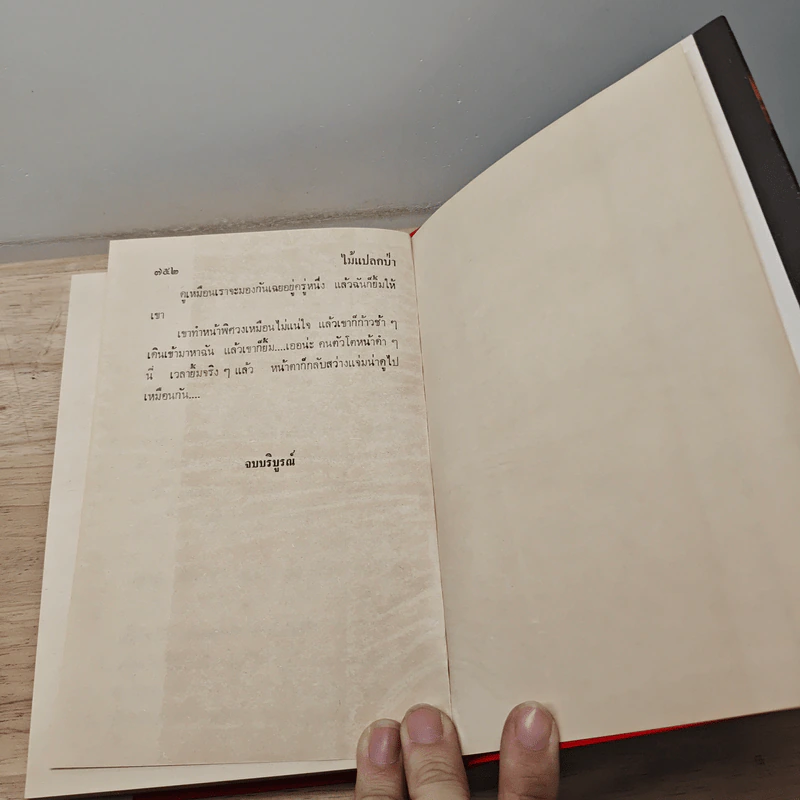 ๗๕๒ ไม้แปลกป่า
ดูเหมือนเราจะมองกันเฉยอยู่ครู่หนึ่ง แล้วฉันก็ยิ้มให้
เขา
เขาทำหน้าพิศวงเหมือนไม่แน่ใจ แล้วเขาก็ก้าวช้า ๆ
เดินเข้ามาหาฉัน แล้วเขาก็ยิ้ม....เออน่ะ คนตัวโตหน้าดำ ๆ
นี่ เวลายิ้มจริง ๆ แล้ว หน้าตาก็กลับสว่างแจ่มน่าดูไป
เหมือนกัน....
จบบริบูรณ์